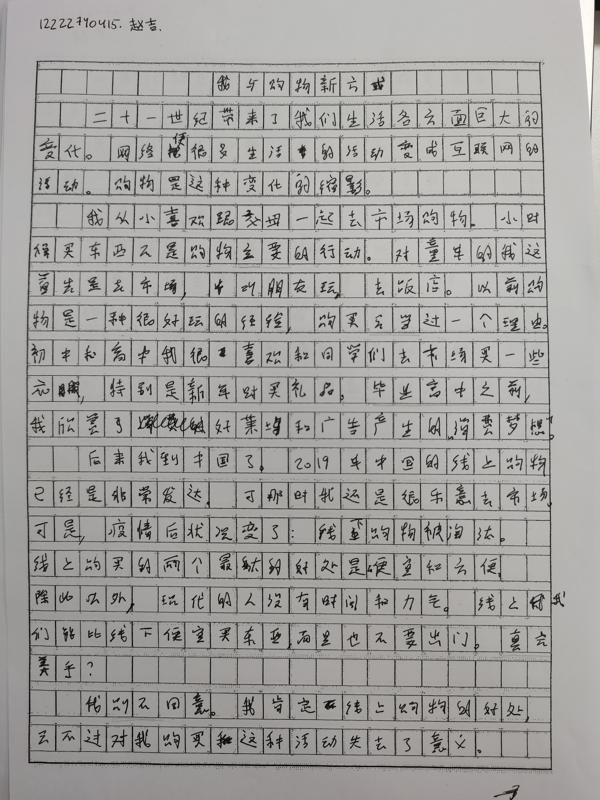 12222740415. 赵吉.
我与购物新方式
二十一世纪带来了我们生活各方面巨大的
变化。网络使很多生活的活动变成互联网的
活动。购物是这种变化的缩影。
我从小喜欢跟父母一起去市场购物。小时
候买东西不是购物主要的行动。对童年的我这
首先是去市场，和朋友玩，去饭店。以前购
物是一种很好玩的经验，购买只当过一个理由。
初中和高中我很喜欢和同学们去市场买一些
衣服，特别是新年时买礼品。毕业高中之前，
我欣赏了好莱坞和广告产生的"消费梦想"。
后来我到中国了。2019年中国的线上购物
已经是非常发达，可那时我还是很乐意去市场，
可是，疫情后状况变了：线下购物被淘汰。
线上购买的两个最大的好处是便宜和方便，
除此以外，现代的人没有时间和力气。线上我
们能比线下便宜买东西，而且也不要出门。真完
美乎？
我则不同意。我肯定线上购物的好处，
只不过对我购买这种活动失去了意义。